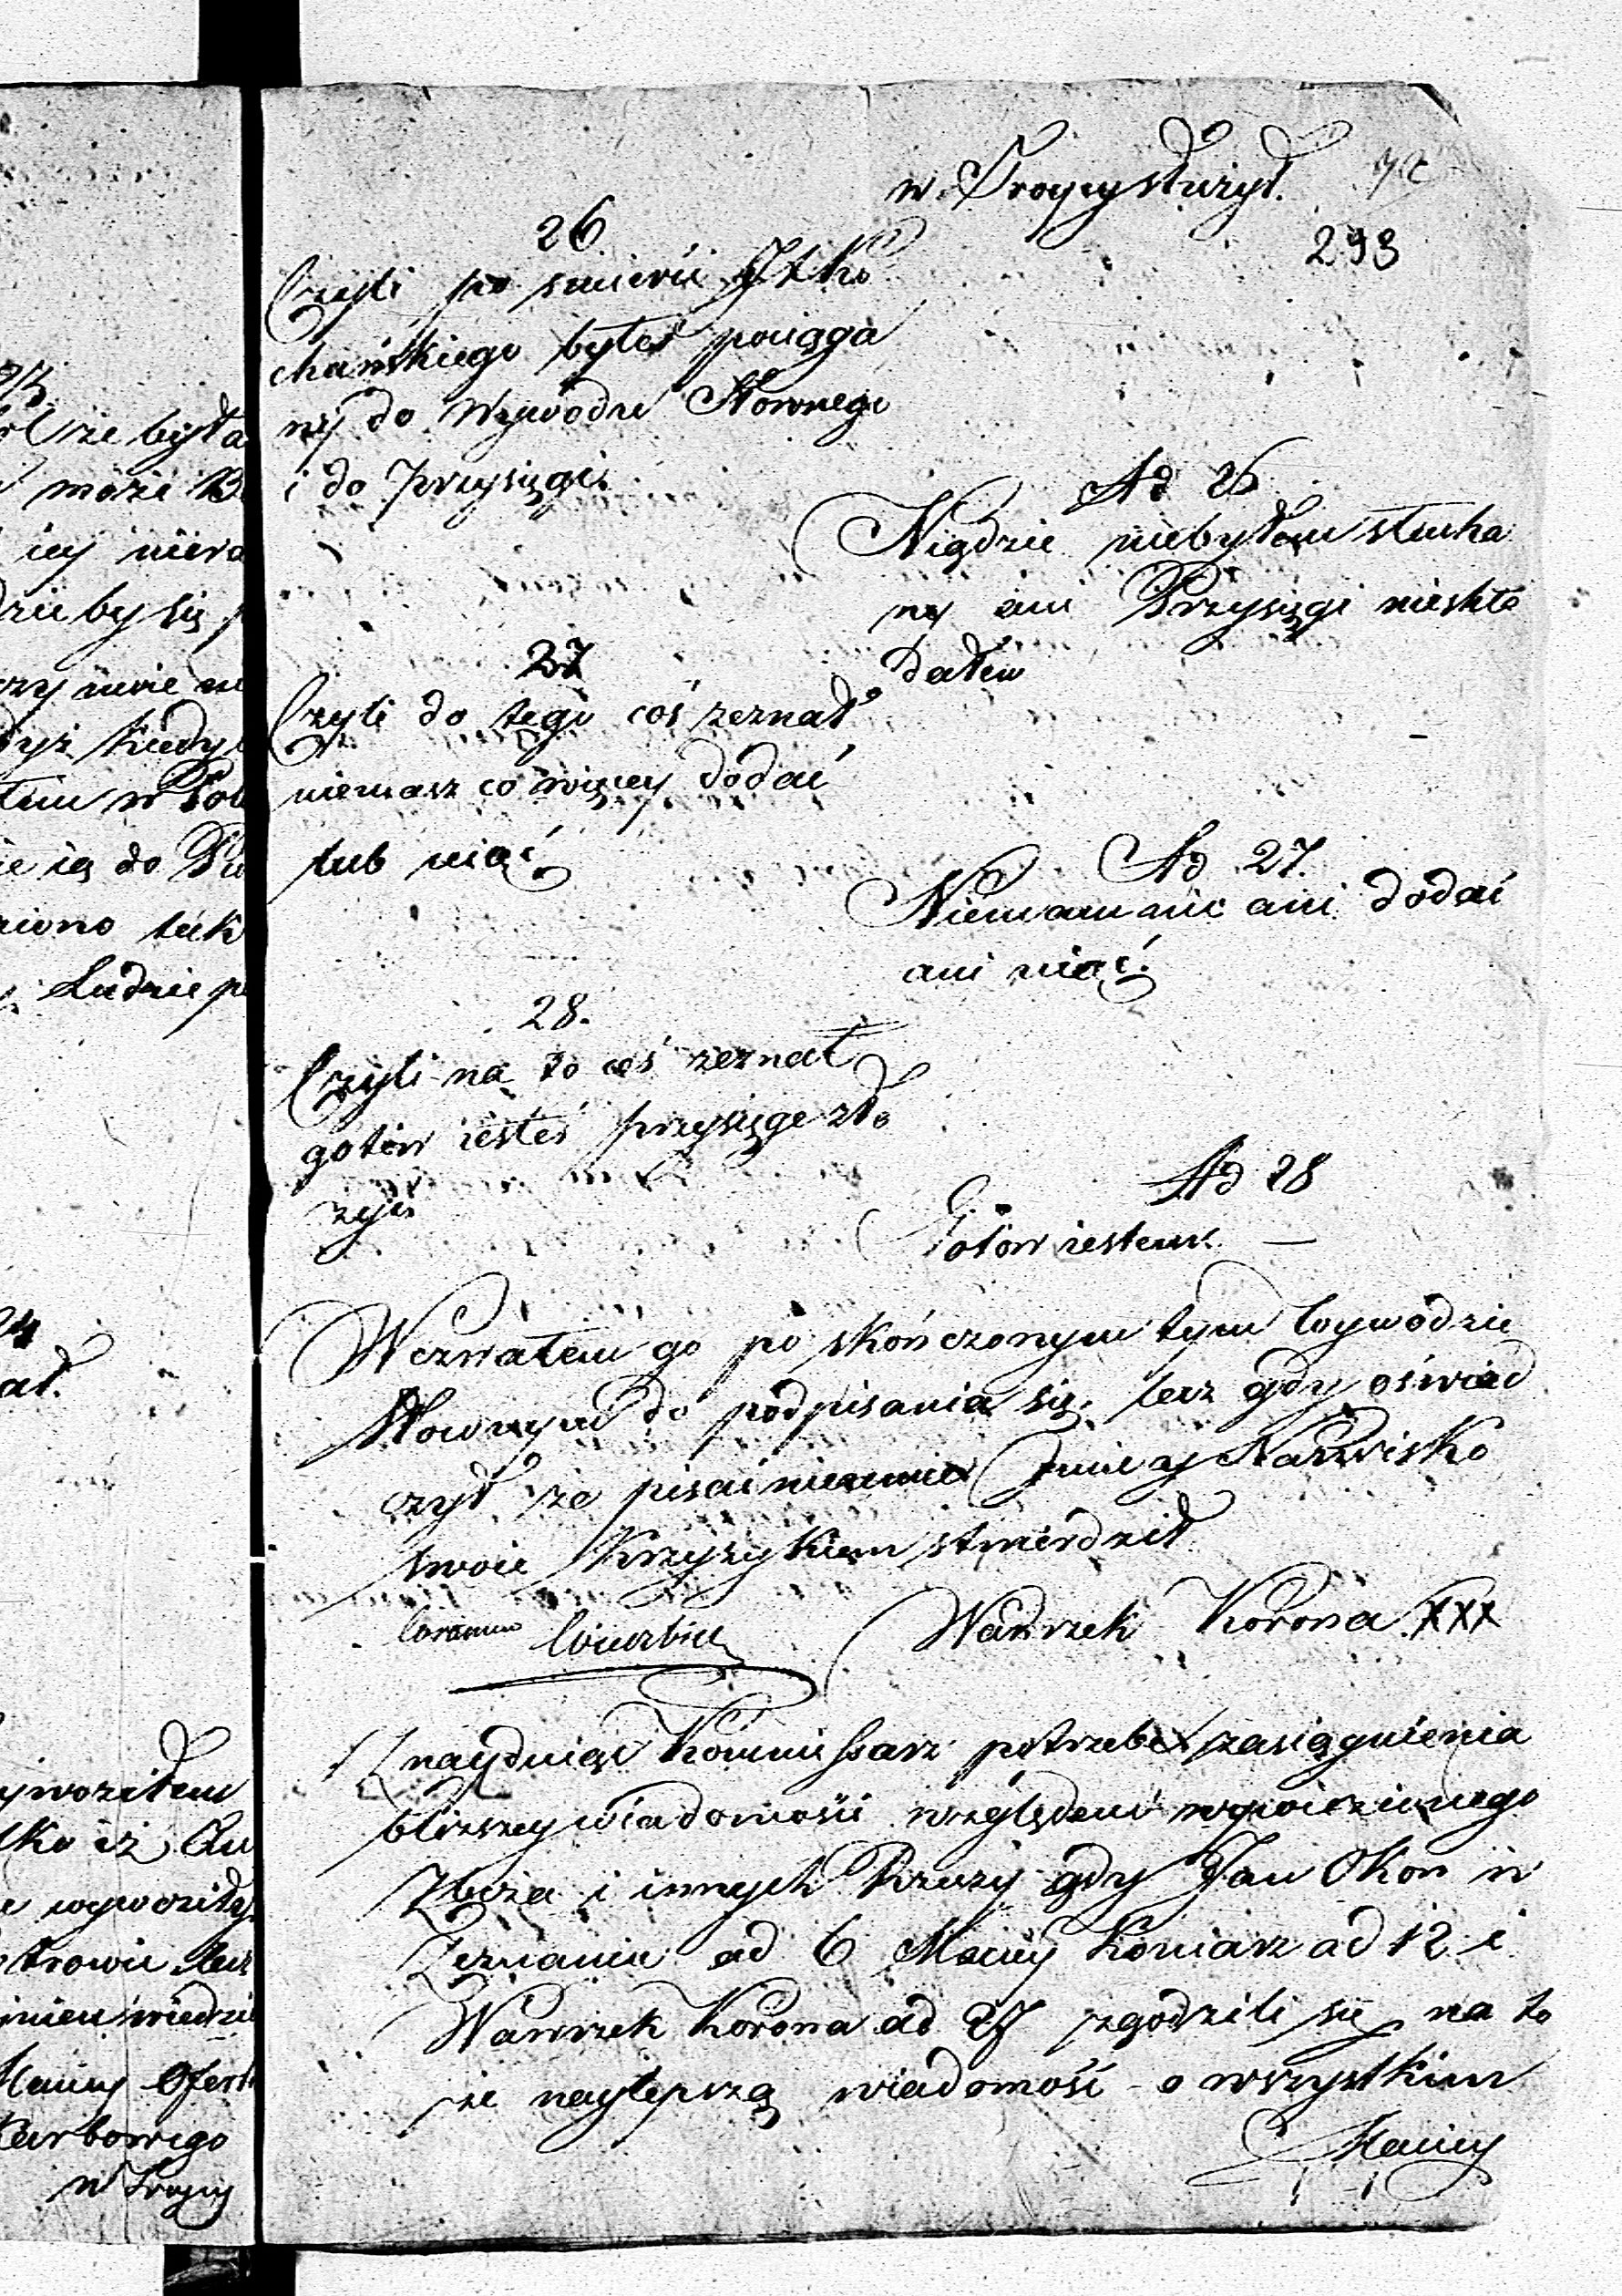 w Troycy służył.
293
26
Czyli po smierci JPKo
chańskiego byłeś pociąga
ny do Wywodu Słownego
i do przysięgi.
Ad 26
Nigdzie niebyłem słucha
ny ani Przysięgi nieskła
dałem
27
Czyli do tego coś zeznał
niemasz co więcey dodać
lub uiąć
Ad 27.
Niemam nic ani dodać
ani uiąć.
28.
Czyli na to coś zeznał
gotow iesteś przysięge zło
zyć
Ad 28
Gotow iestem. —
Wezwałem go po skończonym tym wywodzie
Słownym do podpisania się. lecz gdy oświad
czył że pisać nieumie Jmie y Nazwisko
swoie Krzyzykiem stwierdził
Coram
Wawrzek Korona XXX
Znayduiąc Kommissarz potrzebe zasiągnienia
blizszey wiadomości względem wywiezionego
Zboza i innych Rzeczy gdy Jan Okon w
Zeznaniu ad 6 Maciey Koniarz ad 12 i
Wawrzek Korona ad 27 zgodzili się na to
że naylepszą wiadomość o wszystkim
Maciey
że była
może
iey
dzie by się
kiedy
w
do
Ludzie
24
wywoziłem
iż
Maciey
Karbowego
w Troycy